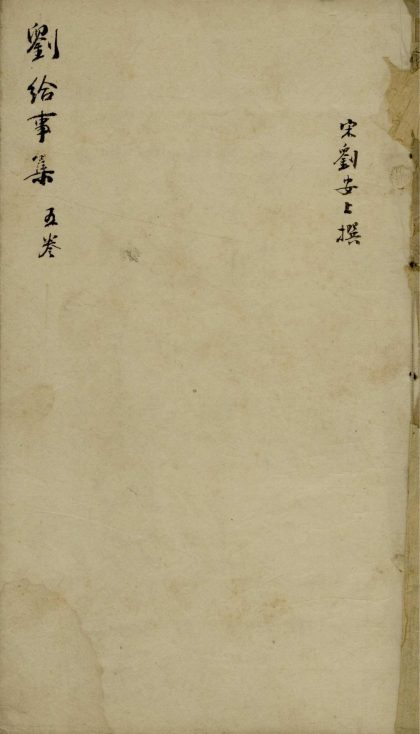 宋劉安上撰
劉給事集 五卷